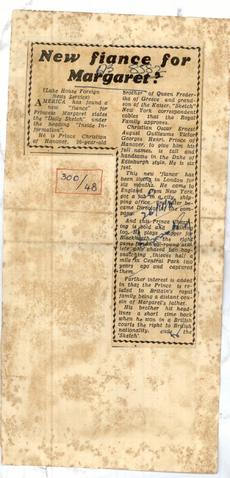 New fiance for
Margaret?
(Lake House Foreign
News Service)
AMERICA has found a
new "fiance" for
Princess Margaret states
the "Daily Sketch" under
the heading "Inside In-
formation".
He is Prince Christian
of Hanover, 36-year-old
brother of Queen Freder-
ika of Greece and grand-
son of the Kaiser, "Sketch's"
New York correspondent
cables that the Royal
Family approves.
Christian Oscar Ernest
August Guillaume Victor
Georges Henri, Prince of
Hanover, to give him his
full names, is tall and
handsome in the Duke of
Edinburgh style. He is six
feet.
This new "fiance" has
been living in London for
six months. He came to
England from New York,
got a job in a city ship-
ping office
And this Prince
is bold
too.
chased two bag
snatching thieves half a
mile in Central Park two
years ago and captured
them.
Further interest is added
in that the Prince is re-
lated to Britain's royal
family being a distant cou-
sin of Margaret's father.
His brother hit head-
lines a short time back
when he won in a British
courts the right to British
nationality, ends the
"Sketch".
300/
48